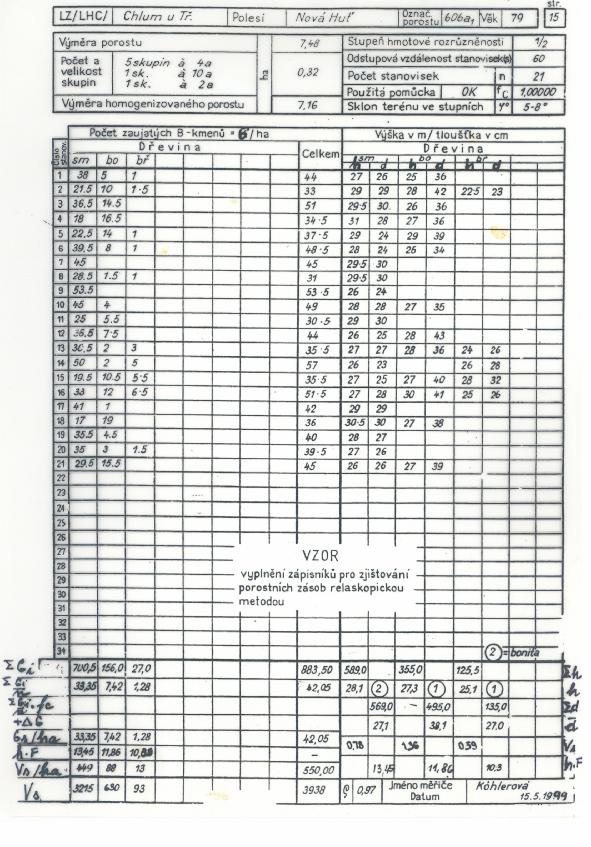 str.
LZ/LHC/ Chlum u Tř. Polesí Nová Huť Označ. porostu 606a₁ Věk 79 15
Výměra porostu 7,48 Stupeň hmotové rozrůzněnosti 1/2
Počet a velikost skupin 5 skupin à 4a 1 sk. à 10a 1 sk. à 2a ha 0,32 Odstupová vzdálenost stanovisek(s) 60
Počet stanovisek n 21
Použitá pomůcka OK fc 1,00000
Výměra homogenizovaného porostu 7,16 Sklon terénu ve stupních γ° 5-8°
Počet zaujatých B-kmenů = 6/ha Výška v m/ tloušťka v cm
Číslo stanov. Dřevina Celkem Dřevina
sm bo bř sm bo bř
h d h d h d
1 38 5 1 44 27 26 25 36
2 21.5 10 1·5 33 29 29 28 42 22·5 23
3 36,5 14.5 51 29·5 30 26 36
4 18 16.5 34·5 31 28 27 36
5 22,5 14 1 37·5 29 24 29 39
6 39,5 8 1 48·5 28 24 26 34
7 45 45 29·5 30
8 28,5 1.5 1 31 29·5 30
9 53.5 53·5 26 24
10 45 4 49 28 28 27 35
11 25 5.5 30·5 29 30
12 36,5 7·5 44 26 25 28 43
13 30,5 2 3 35·5 27 27 28 36 24 26
14 50 2 5 57 26 23 26 28
15 19.5 10.5 5·5 35·5 27 25 27 40 28 32
16 33 12 6·5 51·5 27 28 30 41 25 26
17 41 1 42 29 29
18 17 19 36 30·5 30 27 38
19 35.5 4.5 40 28 27
20 35 3 1.5 39·5 27 26
21 29.5 15.5 45 26 26 27 39
22
23
24
25
26
27
28
29
30
31
32
33
34
VZOR
vyplnění zápisníků pro zjišťování
porostních zásob relaskopickou
metodou
② = bonita
Σ Gi 700,5 156,0 27,0 883,50 589,0 355,0 125,5 Σh
33,35 7,42 1,28 42,05 28,1 ② 27,3 ① 25,1 ① h
569,0 – 495,0 135,0 Σd
+ΔG 27,1 38,1 27.0 d
G₁/ha 33,35 7,42 1,28 42,05 0,78 1,36 0,59 V₁
h.F 13,45 11,86 – 13,45 11,86 10,3 h.F
V₁/ha 449 88 13 550,00
V₁ 3215 630 93 3938 ρ 0,97 Jméno měřiče Köhlerová
Datum 15.5.1999